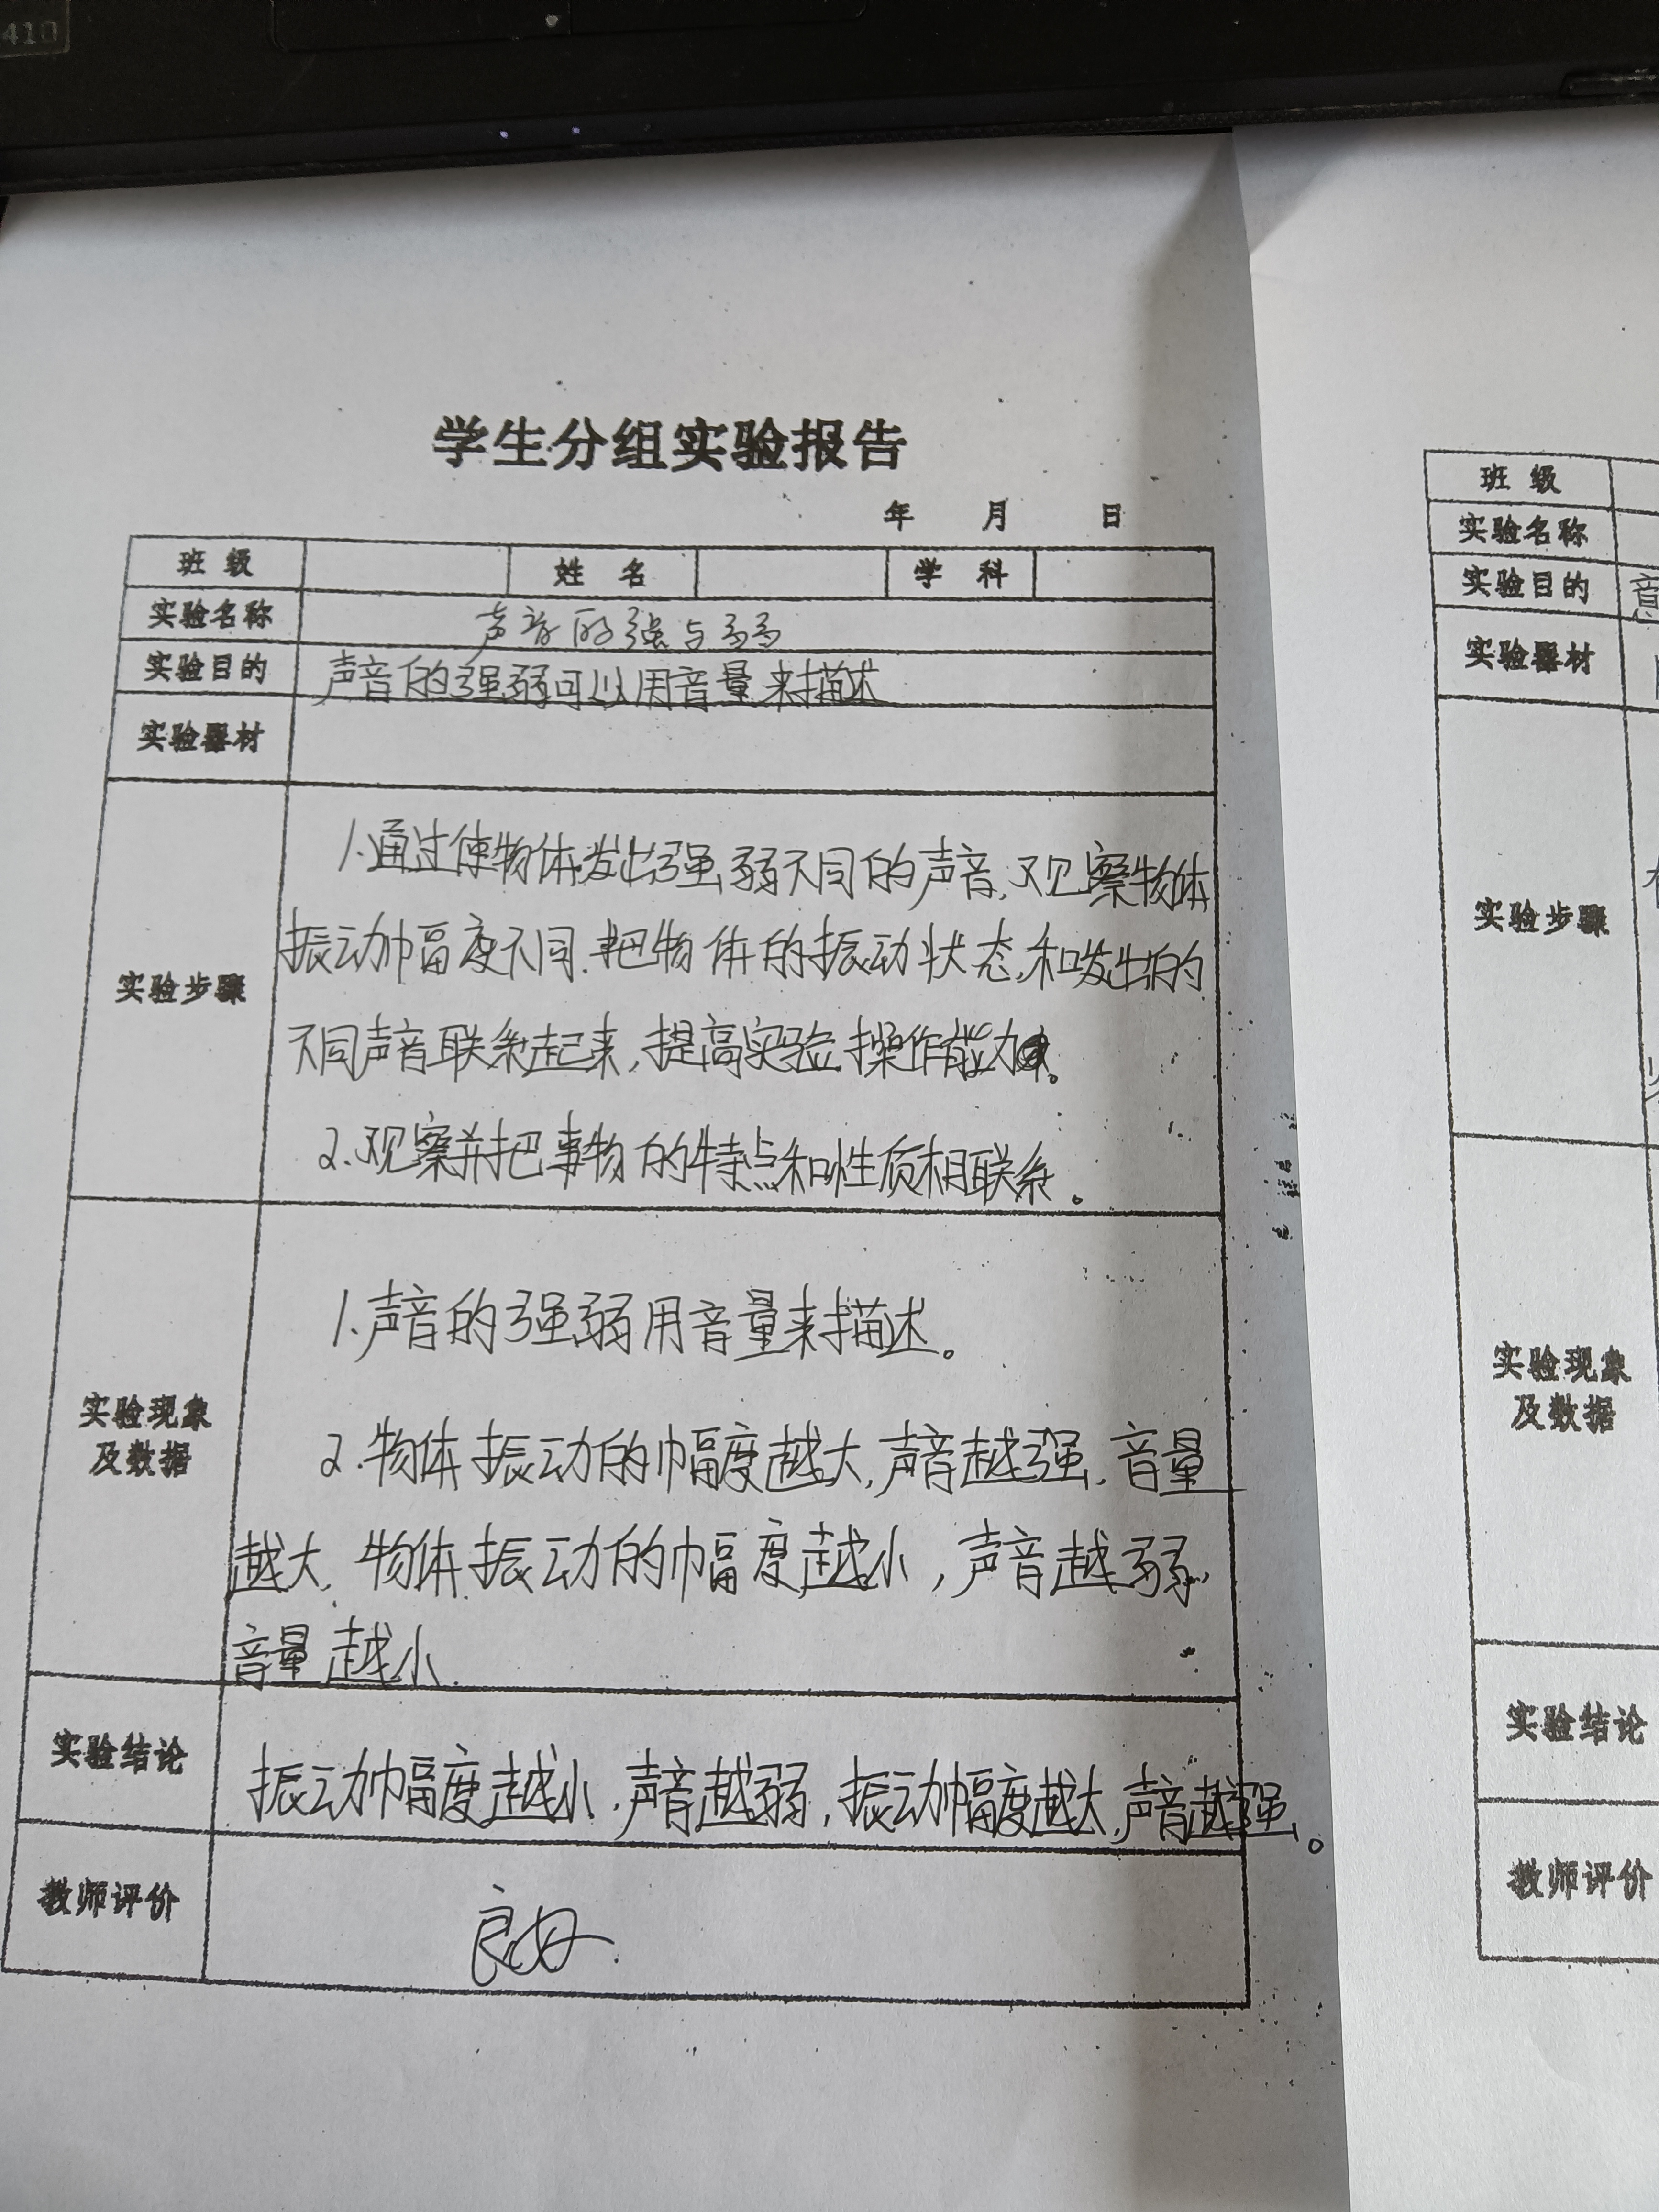 410
学生分组实验报告
年 月 日
班 级 姓 名 学 科
实验名称 声音的强与弱
实验目的 声音的强弱可以用音量来描述
实验器材
实验步骤
1.通过使物体发出强弱不同的声音,观察物体
振动幅度不同.把物体的振动状态,和发出的
不同声音联系起来,提高实验操作能力。
2.观察并把事物的特点和性质相联系。
实验现象
及数据
1.声音的强弱用音量来描述。
2.物体振动的幅度越大,声音越强,音量
越大,物体振动的幅度越小,声音越弱,
音量越小.
实验结论 振动幅度越小,声音越弱,振动幅度越大,声音越强。
教师评价 良好.
班 级
实验名称
实验目的 意
实验器材
实验步骤
实验现象
及数据
实验结论
教师评价